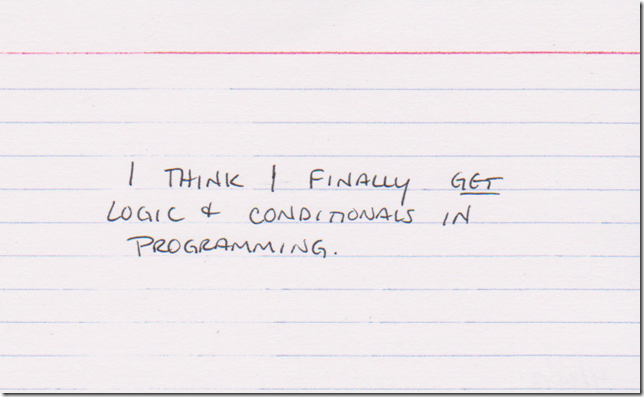 I THINK I FINALLY GET
LOGIC & CONDITIONALS IN
PROGRAMMING.